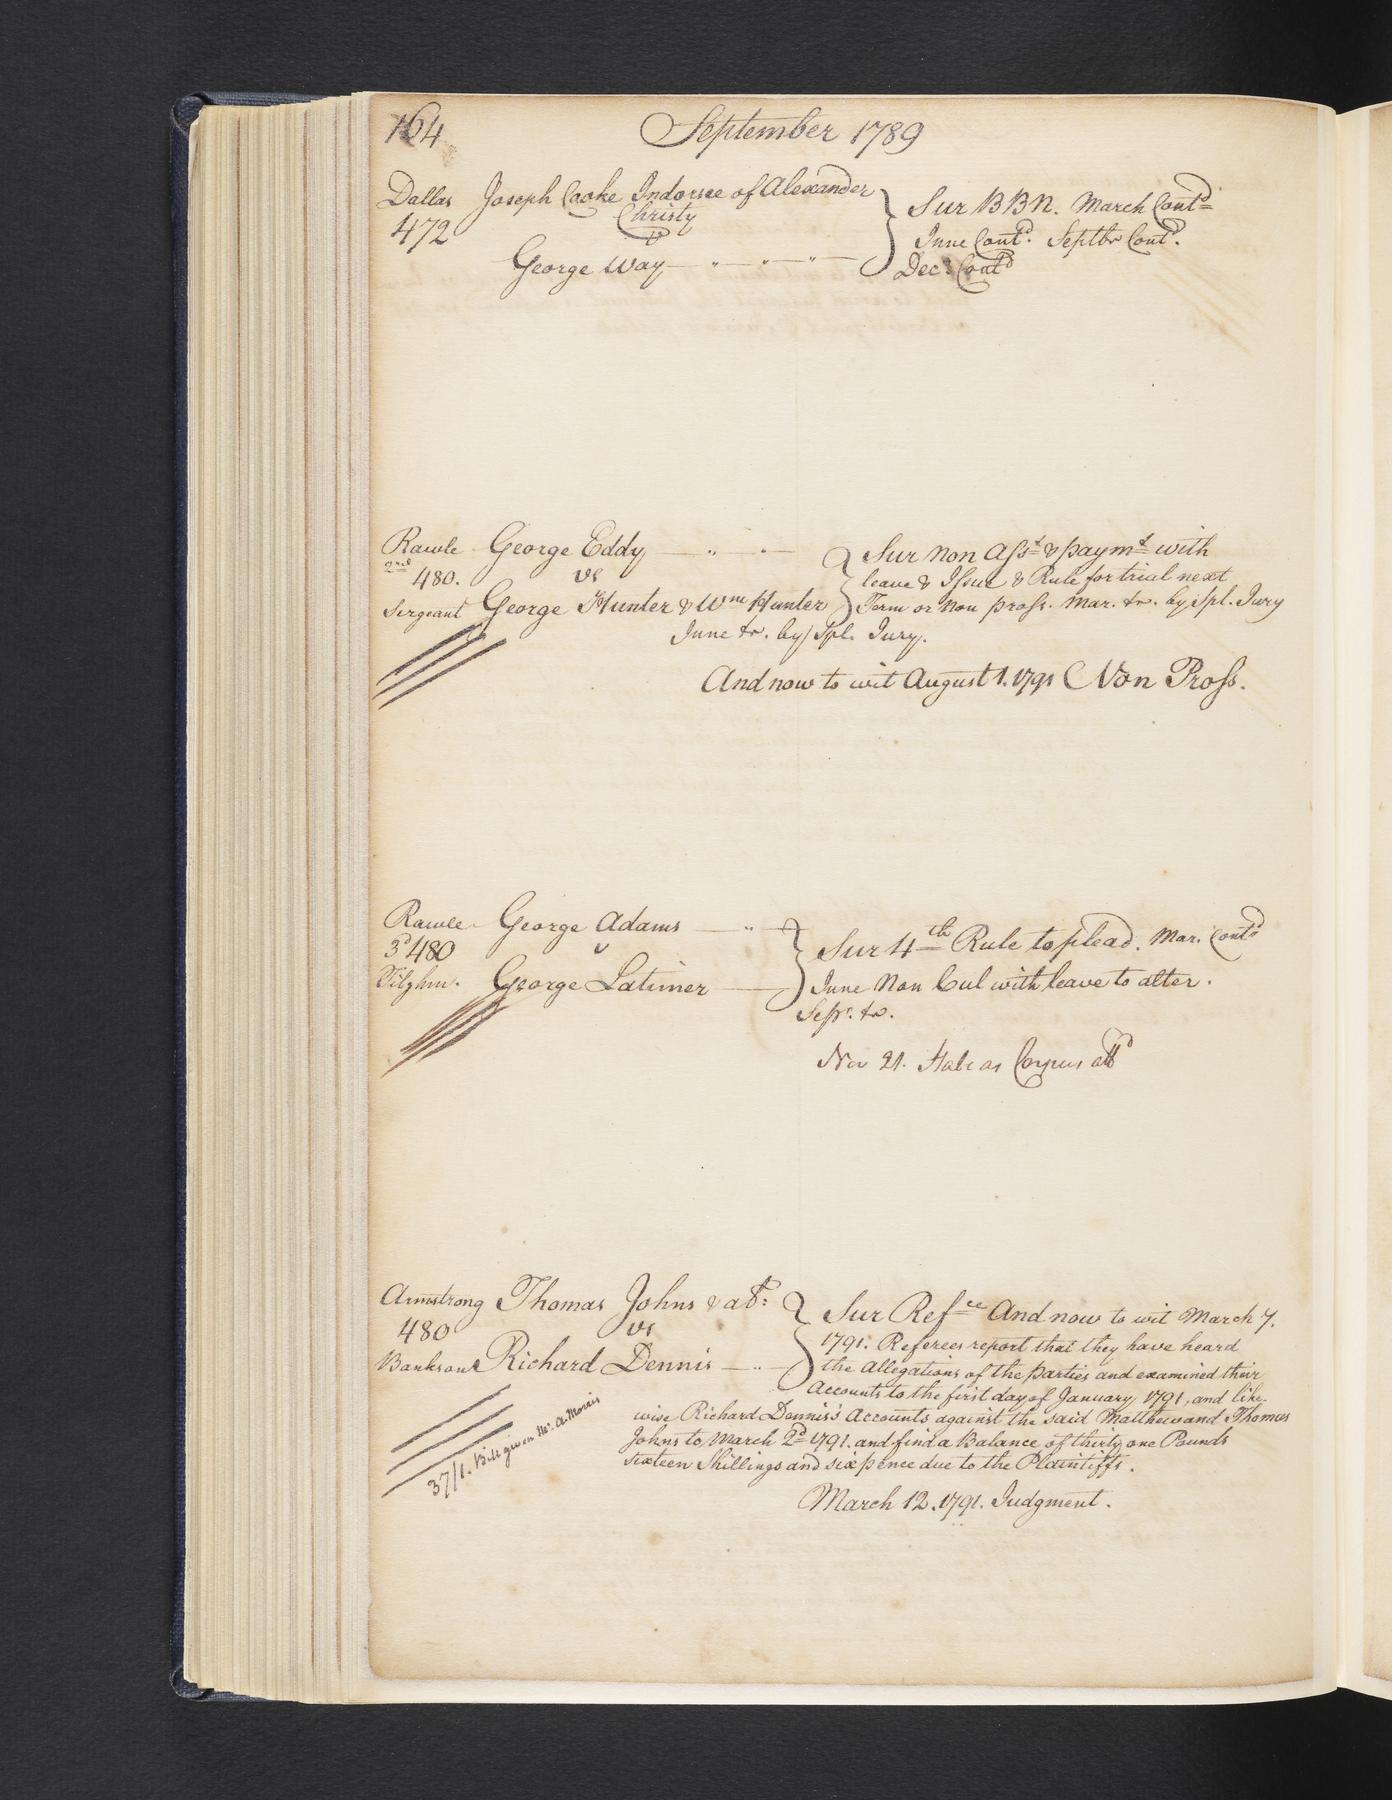 164 September 1789
Dallas Joseph Cooke Indorsee of Alexander
Christy
472 v
George Way
Sur BBN. March Contd
June Contd. Septbr Contd.
Decr. Contd
Rawle George Eddy
2nd 480. vs
Sergeant George Hunter & Wm Hunter
Sur Non Asst & paymt with
leave & Issue & Rule for trial next
Term or Non pross. Mar. tr. by Spl. Jury
June tr. by Spl. Jury.
And now to wit August 1. 1791 Non Pross.
Rawle George Adams
3d 480 v
Tilghm. George Latimer
Sur 4th Rule to plead. Mar. Contd
June Non Cul with leave to alter.
Sepr. tr.
Nov 21. Habeas Corpus alld
Armstrong Thomas Johns & al:
480 vs
Bankson Richard Dennis
Sur Refce And now to wit March 7.
1791. Referees report that they have heard
the Allegations of the parties and examined their
Accounts to the first day of January 1791, and like-
wise Richard Dennis's Accounts against the said Matthew and Thomas
Johns to March 2d 1791. and find a Balance of thirty one Pounds
sixteen Shillings and sixpence due to the Plaintiffs.
March 12. 1791. Judgment.
37/1. Bill given Mr. A. Morris